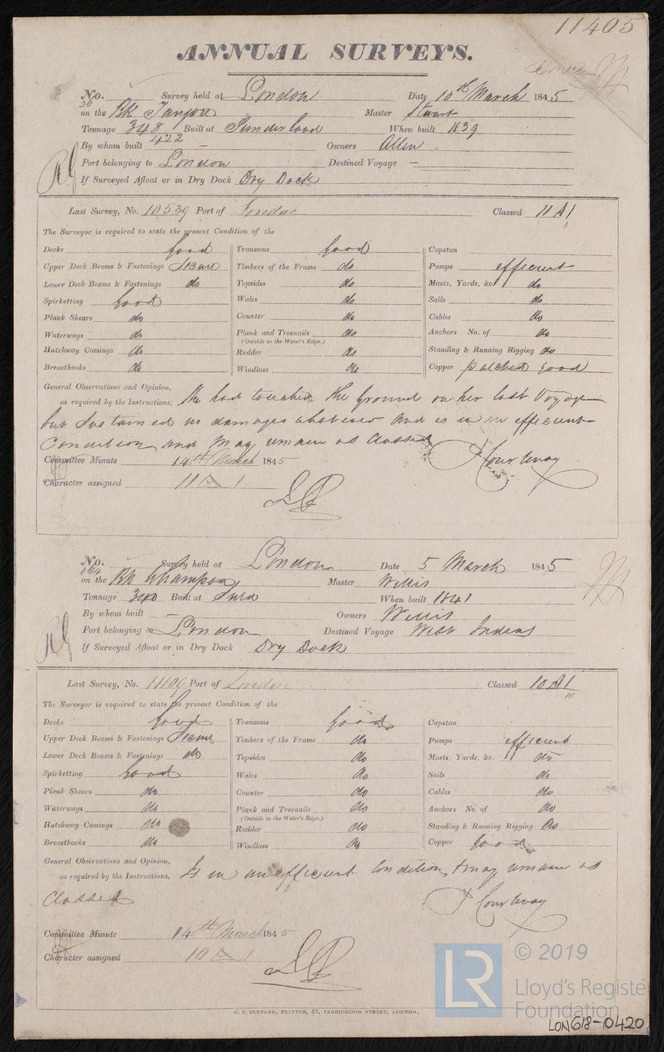 11405
ANNUAL SURVEYS.
No. 30 Survey held at London Date 10th March 1845
on the Bk Tanjore Master Stuart
Tonnage 348 Built at Sunderland When built 1839
422
By whom built — Owners Allen
Port belonging to London Destined Voyage —
If Surveyed Afloat or in Dry Dock Dry Dock
Last Survey, No. 10,539 Port of London Classed 11 A1
3
The Surveyor is required to state the present Condition of the
Decks Good Transoms Good Capstan
Upper Deck Beams & Fastenings Secure Timbers of the Frame do Pumps efficient
Lower Deck Beams & Fastenings do Topsides do Masts, Yards, &c. do
Spirketting Good Wales do Sails do
Plank Shears do Counter do Cables do
Waterways do Plank and Treenails do Anchors No. of do
(Outside to the Water's Edge.)
Hatchway Comings do Rudder do Standing & Running Rigging do
Breasthooks do Windlass do Copper patched good
General Observations and Opinion,
as required by the Instructions, She had touched the ground on her last Voyage
but sustained no damages whatever and is in an efficient
Condition and may remain as Classed
J Courtenay
Committee Minute 14th March 1845
Character assigned 11 A 1
No. 164 Survey held at London Date 5 March 1845
on the Bk Whampoa Master Willis
Tonnage 340 Built at Surd When built 1841
By whom built — Owners Willis
Port belonging to London Destined Voyage West Indias
If Surveyed Afloat or in Dry Dock Dry Dock
Last Survey, No. 11109 Port of London Classed 10 A1
10
The Surveyor is required to state the present Condition of the
Decks Good Transoms Good Capstan
Upper Deck Beams & Fastenings Secure Timbers of the Frame do Pumps efficient
Lower Deck Beams & Fastenings do Topsides do Masts, Yards, &c. do
Spirketting Good Wales do Sails do
Plank Shears do Counter do Cables do
Waterways do Plank and Treenails do Anchors No. of do
(Outside to the Water's Edge.)
Hatchway Comings do Rudder do Standing & Running Rigging do
Breasthooks do Windlass do Copper Good
General Observations and Opinion,
as required by the Instructions, Is in an efficient Condition & may remain as
Classed
J Courtenay
Committee Minute 14th March 1845
Character assigned 10 A 1
C. F. SEYFANG, PRINTER, 57, FARRINGDON STREET, LONDON.
LR © 2019
Lloyd's Register
Foundation
LON618-0420